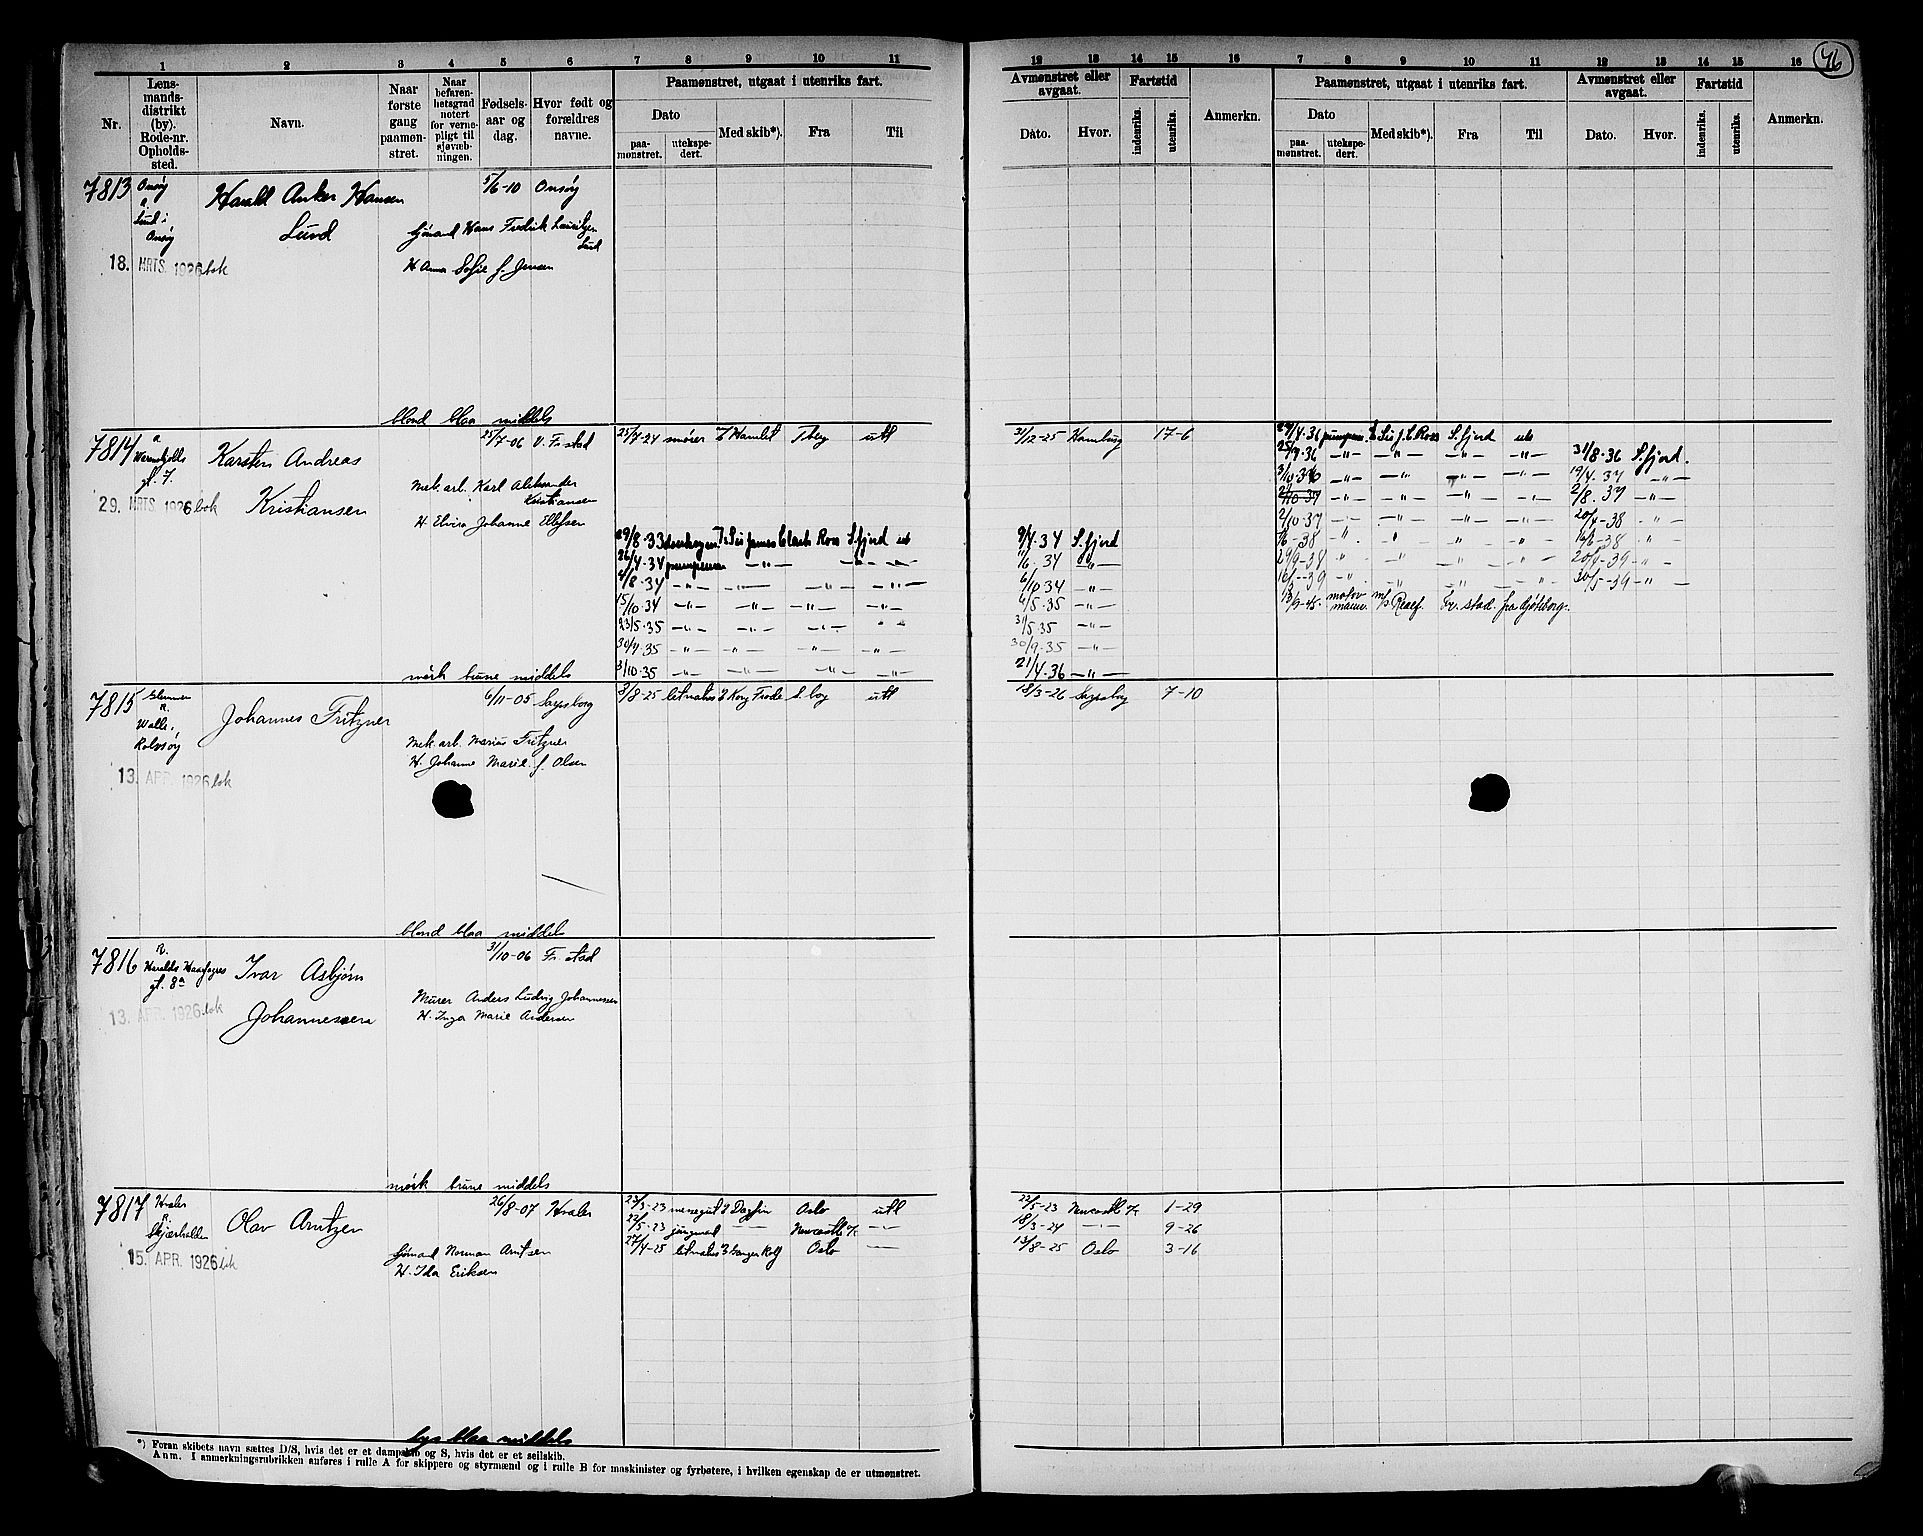 76
1 2 3 4 5 6 7 8 9 10 11
12 13 14 15 16 7 8 9 10 11 12 13 14 15 16
Nr.
Lens-
mands-
distrikt
(by).
Rode-nr.
Opholds-
sted.
Navn.
Naar
første
gang
paamøn-
stret.
Naar
befaren-
hetsgrad
notert
for verne-
pligt til
sjøvæb-
ningen.
Fødsels-
aar og
dag.
Hvor født og
forældres
navne.
Paamønstret, utgaat i utenriks fart.
Dato
paa-
mønstret.
utekspe-
dert.
Med skib*).
Fra
Til
Avmønstret eller
avgaat.
Dato.
Hvor.
Fartstid
indenriks.
utenriks.
Anmerkn.
Paamønstret, utgaat i utenriks fart.
Dato
paa-
mønstret.
utekspe-
dert.
Med skib*).
Fra
Til
Avmønstret eller
avgaat.
Dato.
Hvor.
Fartstid
indenriks.
utenriks.
Anmerkn.
7813 Onsøy Harald Anker Hansen 5/6-10 Onsøy
Lund i
Onsøy Lund
Sjømand Hans Fredrik Lauritzen
Lund
18. MRTS. 1926 bok H Anna Sofie f. Jensen
blond blaa middels
7814 Karsten Andreas 25/7-06 V. Fr.stad 25/4-24 smører Hamlet Tberg utl 31/12-25 Hamburg 17-6
gt. 7.
Mek. arb. Karl Aleksander
Kristiansen
29. MRTS 1926 bok Kristiansen
H Elvira Johanne Ellefsen
29/8-33 Sir James Clark Ross S.fjord utl 9/4-34 S.fjord
26/4-34 pumpeman -"- -"- -"- 11/6-34 -"-
4/8-34 -"- -"- -"- -"- 6/10-34 -"-
15/10-34 -"- -"- -"- -"- 4/5-35 -"-
23/5-35 -"- -"- -"- -"- 31/5-35 -"-
30/7-35 -"- -"- -"- -"- 30/9-35 -"-
3/10-35 -"- -"- -"- -"- 21/4-36 -"-
29/4-36 pumpem. Sir J. C. Ross S.fjord utl
25/7-36 -"- -"- -"- -"- 31/8-36 S.fjord.
3/10-36 -"- -"- -"- -"- 19/4-37 -"-
2/10-37 -"- -"- -"- -"- 2/8-37 -"-
2/10-37 -"- -"- -"- -"- 20/4-38 -"-
1/6-38 -"- -"- -"- -"- 16/6-38 -"-
29/9-38 -"- -"- -"- -"- 20/4-39 -"-
16/5-39 -"- -"- -"- -"- 30/5-39 -"-
13/9-45. motor
mann. m/s Fr.stad. fra Gøteborg.
mørk brune middels
7815 Glemmen Johannes Fritzner 6/11-05 Sarpsborg 8/8-25 letmatros Kong Frode S.borg utl 18/3-26 Sarpsborg 7-10
Walle,
Rolvsøy
Mek. arb. Marius Fritzner
H. Johanne Marie f. Olsen
13. APR. 1926 bok
blond blaa middels
7816 Haralds Haarfagres gt. 8a Ivar Asbjørn 31/10-06 Fr.stad
Johannessen
Murer Anders Ludvig Johannessen
13. APR. 1926 bok H. Inga Marie Andersen
mørk brune middels
7817 Hvaler Olav Arntzen 26/8-07 Hvaler 23/3-23 messegut Dagfin Oslo utl 22/5-23 Newcastle 1-29
Skjærhalden
22/5-23 jungmand -"- Newcastle -"- 18/3-24 -"- 9-26
27/4-25 letmatros Ganger Rolf Oslo -"- 13/8-25 Oslo 3-16
Sjømand Norman Arntsen
15. APR. 1926 bok H. Ida Eriksen
lys blaa middels
*) Foran skibets navn sættes D/S, hvis det er et dampskib og S, hvis det er et seilskib.
Anm. I anmerkningsrubrikken anføres i rulle A for skippere og styrmænd og i rulle B for maskinister og fyrbøtere, i hvilken egenskap de er utmønstret.